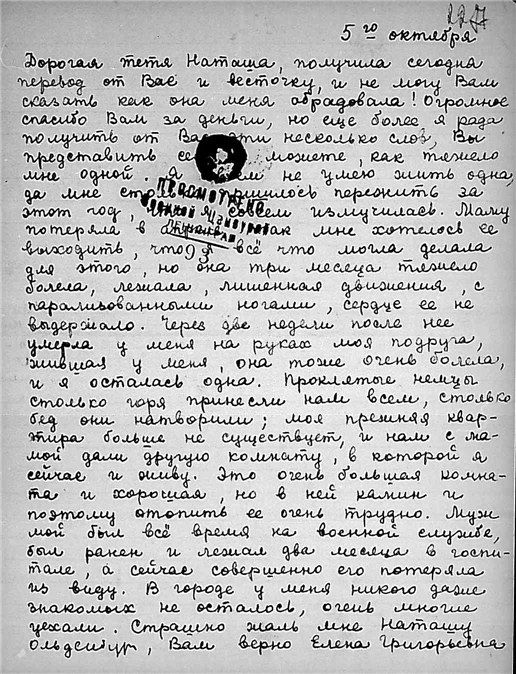 227
5го октября
Дорогая тетя Наташа, получила сегодня
перевод от Вас и весточку, и не могу Вам
сказать как она меня обрадовала! Огромное
спасибо Вам за деньги, но еще более я рада
получить от Вас эти несколько слов, Вы
представить се можете, как тяжело
мне одной. Я не умею жить одна,
да мне сто пришлось пережить за
этот год, совсем измучилась. Маму
потеряла в так мне хотелось ее
выходить, что я всё что могла делала
для этого, но она три месеца тяжело
болела, лежала, лишенная движения, с
парализованными ногами, сердце ее не
выдержало. Через две недели после нее
умерла у меня на руках моя подруга,
жившая у меня, она тоже очень болела,
и я осталась одна. Проклятые немцы
столько горя принесли нам всем, столько
бед они натворили; моя прежняя квар-
тира больше не существует, и нам с ма-
мой дали другую комнату, в которой я
сейчас и живу. Это очень большая комна-
та и хорошая, но в ней камин и
поэтому отопить ее очень трудно. Муж
мой был всё время на военной службе,
был ранен и лежал два месяца в госпи-
тале, а сейчас совершенно его потеряла
из виду. В городе у меня никого даже
знакомых не осталось, очень многие
уехали. Страшно жаль мне Наташу
Ольденбург, Вам верно Елена Григорьевна
ПРОСМОТРЕНО
Военной Цензурой
93